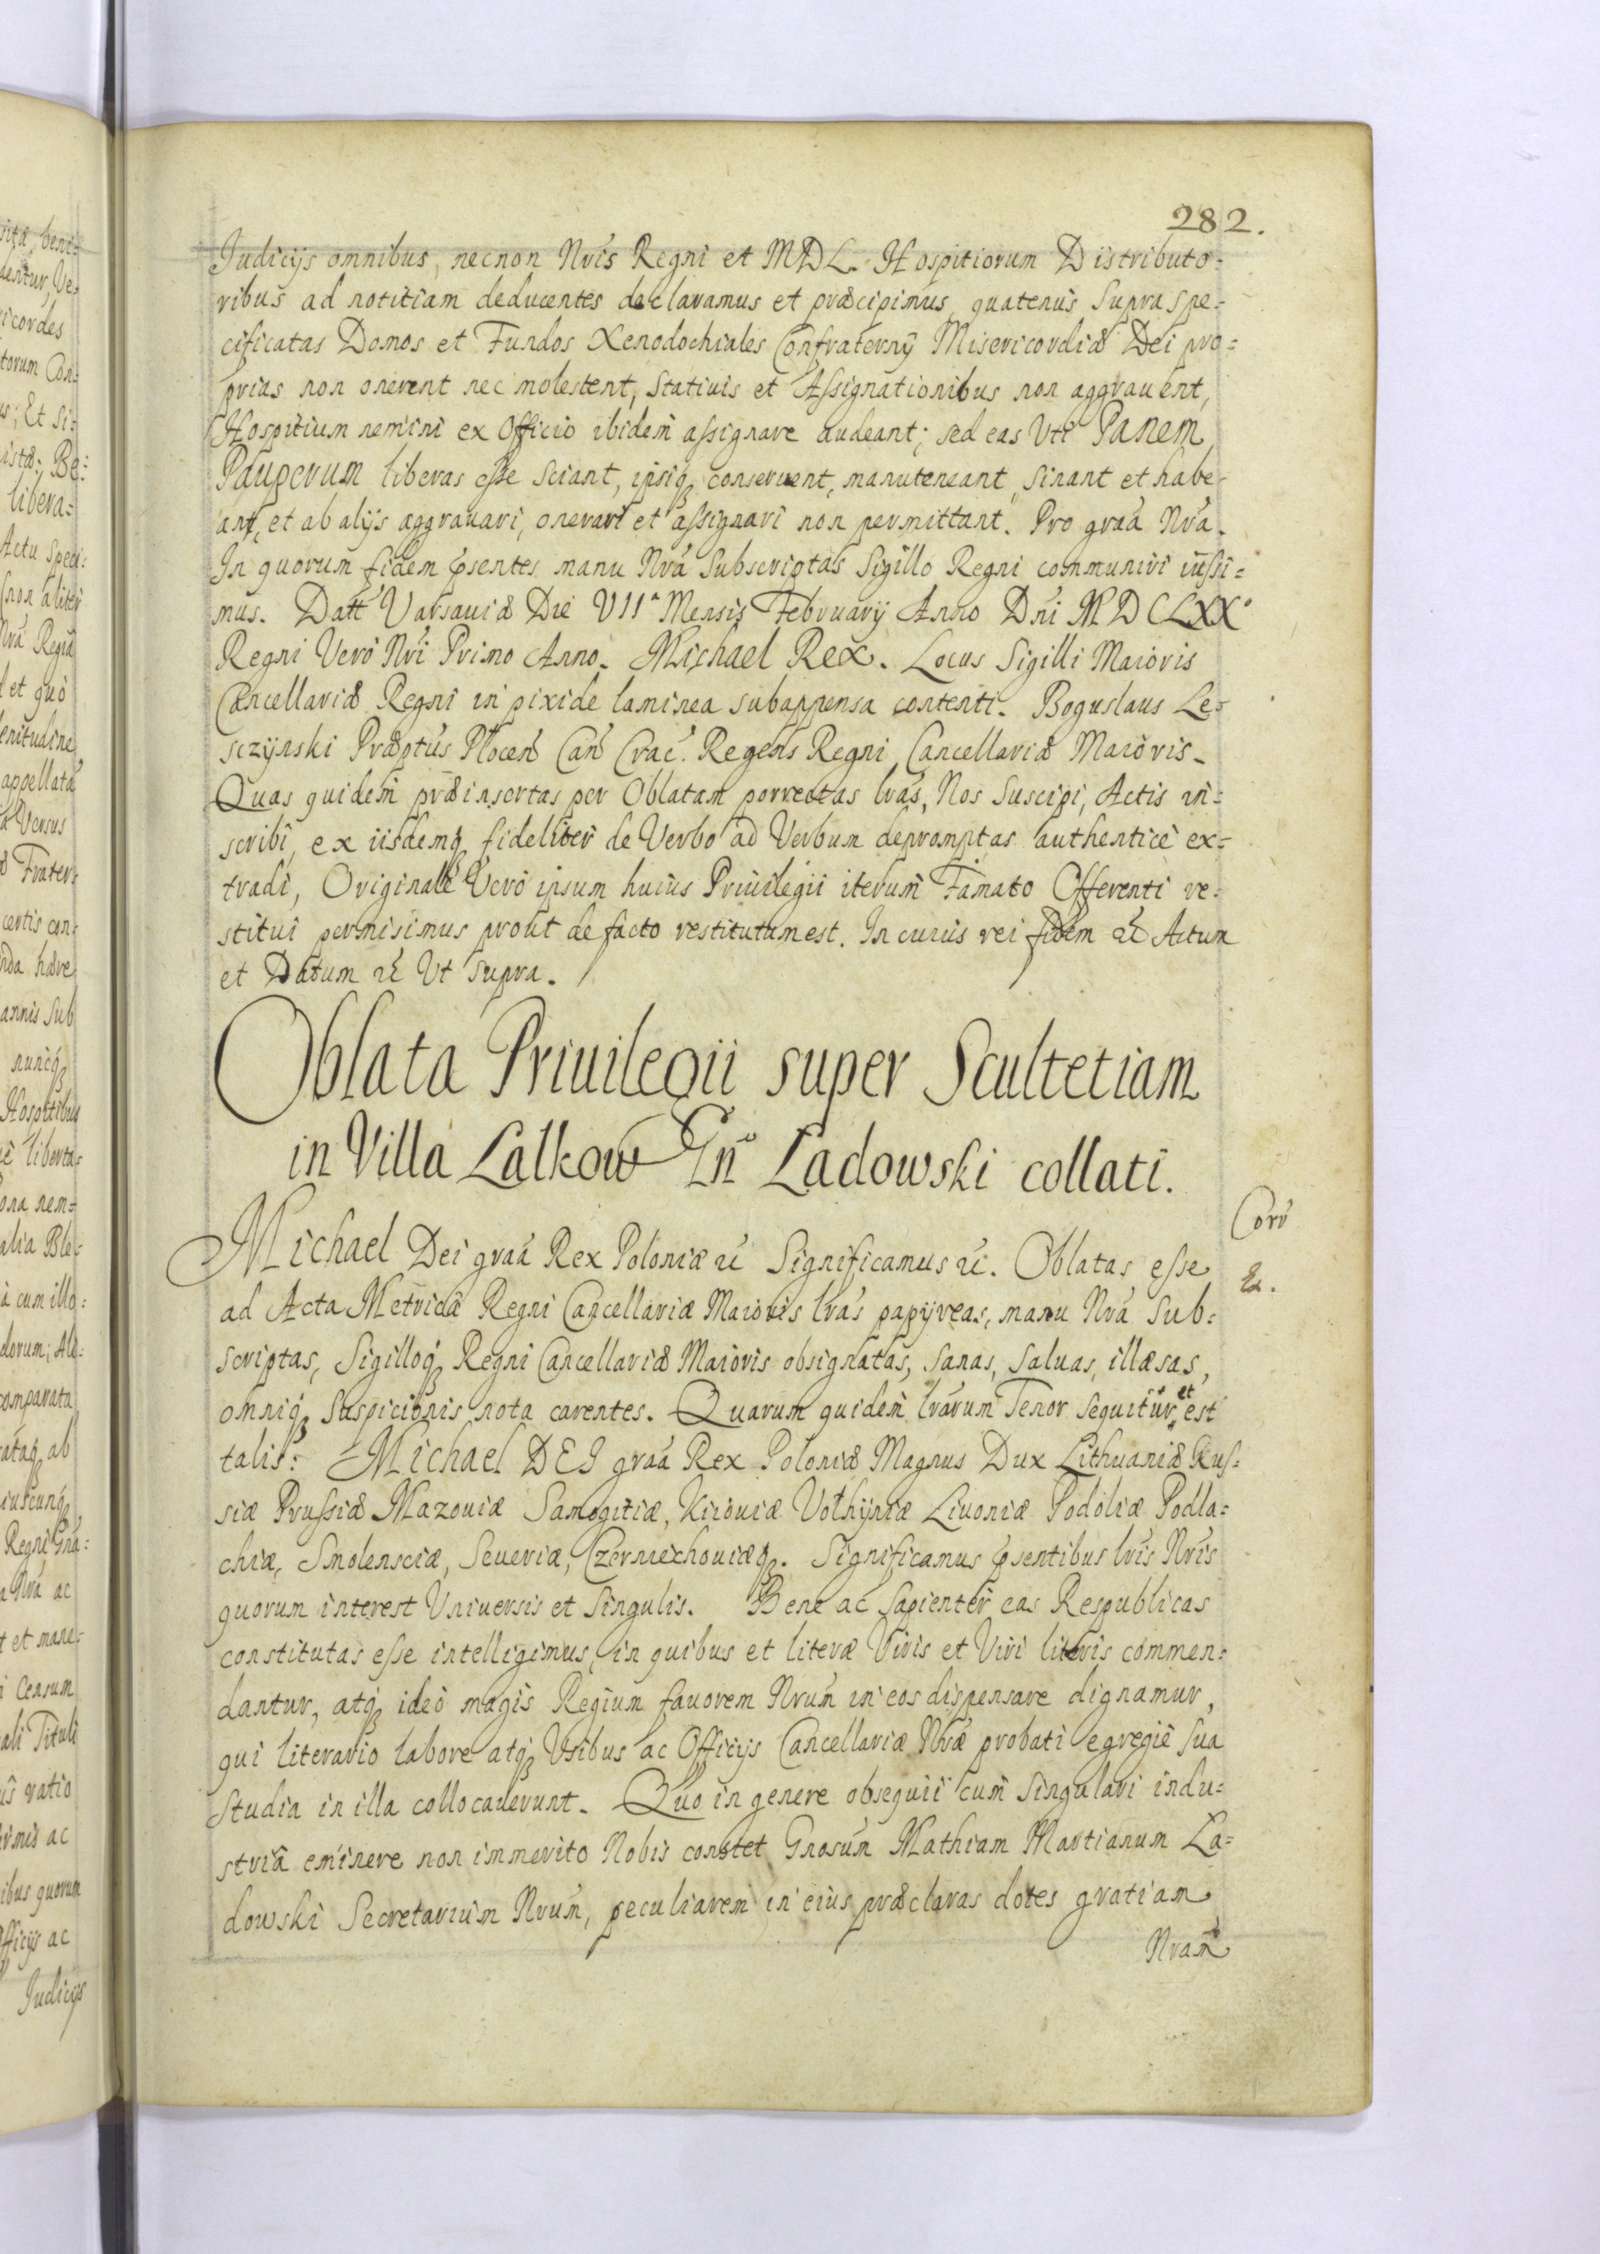 282.
Judicijs omnibus, necnon Nris Regni et MDL. Hospitiorum Distributo-
ribus ad notitiam deducentes declaramus et præcipimus, quatenus supraspe-
cificatas Domos et Fundos Xenodochiales Confraternij Misericordiæ Dei pro=
prias non onerent nec molestent, Statiuis et Assignationibus non aggrauent,
Hospitium nemini ex Officio ibidem assignare audeant; sed eas Uti Panem
Pauperum liberas esse sciant, ipsiq conseruent, manuteneant, sinant et habe-
ant, et ab alijs aggrauari, onerari et assignari non permittant. Pro graa Nra.
In quorum fidem psentes manu Nra Subscriptas Sigillo Regni communiri iussi=
mus. Datt Varsauiæ Die VIIa Mensis February Anno Dni MDCLXXo
Regni Vero Nri Primo Anno. Michael Rex. Locus Sigilli Maioris
Cancellariæ Regni in pixide laminea subappensa contenti. Boguslaus Le=
sczÿnski Præptus Plocen Can Crac. Regens Regni Cancellariæ Maioris.
Quas quidem præinsertas per Oblatam porrectas lras, Nos Suscipi, Actis in=
scribi, ex iisdemq fideliter de Verbo ad Verbum depromptas authentice ex=
tradi, Originale Vero ipsum huius Priuilegii iterum Famato Offerenti re=
stitui permisimus prout de facto restitutum est. In cuius rei fidem &c Actum
et Datum &c Ut supra.
Oblata Priuilegii super Scultetiam
in Villa Lalkow Gn Ladowski collati.
Michael Dei graa Rex Poloniæ &c Significamus &c. Oblatas esse
Corr
ad Acta Metricæ Regni Cancellariæ Maioris lras papÿreas, manu Nra Sub=
Ex.
scriptas, Sigilloq Regni Cancellariæ Maioris obsignatas, sanas, saluas, illæsas,
omniq Suspicionis nota carentes. Quarum quidem lrarum Tenor sequitur et est
talis: Michael DEI graa Rex Poloniæ Magnus Dux Lithuaniæ Rus=
siæ Prussiæ Mazouiæ Samogitiæ, Kiiouiæ Volhÿniæ Liuoniæ Podoliæ Podla=
chiæ, Smolensciæ, Seueriæ, Czerniechouiæq. Significamus psentibus lris Nris
quorum interest Uniuersis et Singulis. Bene ac Sapienter eas Respublicas
constitutas esse intelligimus, in quibus et literæ Viris et Viri literis commen=
dantur, atq ideo magis Regium fauorem Nrum in eos dispensare dignamur,
qui literario labore atq Usibus ac Officijs Cancellariæ Nræ probati egregie sua
studia in illa collocauerunt. Quo in genere obsequii cum singulari indu=
stria eminere non immerito Nobis constet Gnosum Mathiam Martianum La=
dowski Secretarium Nrum, peculiarem in eius præclaras dotes gratiam
Nram